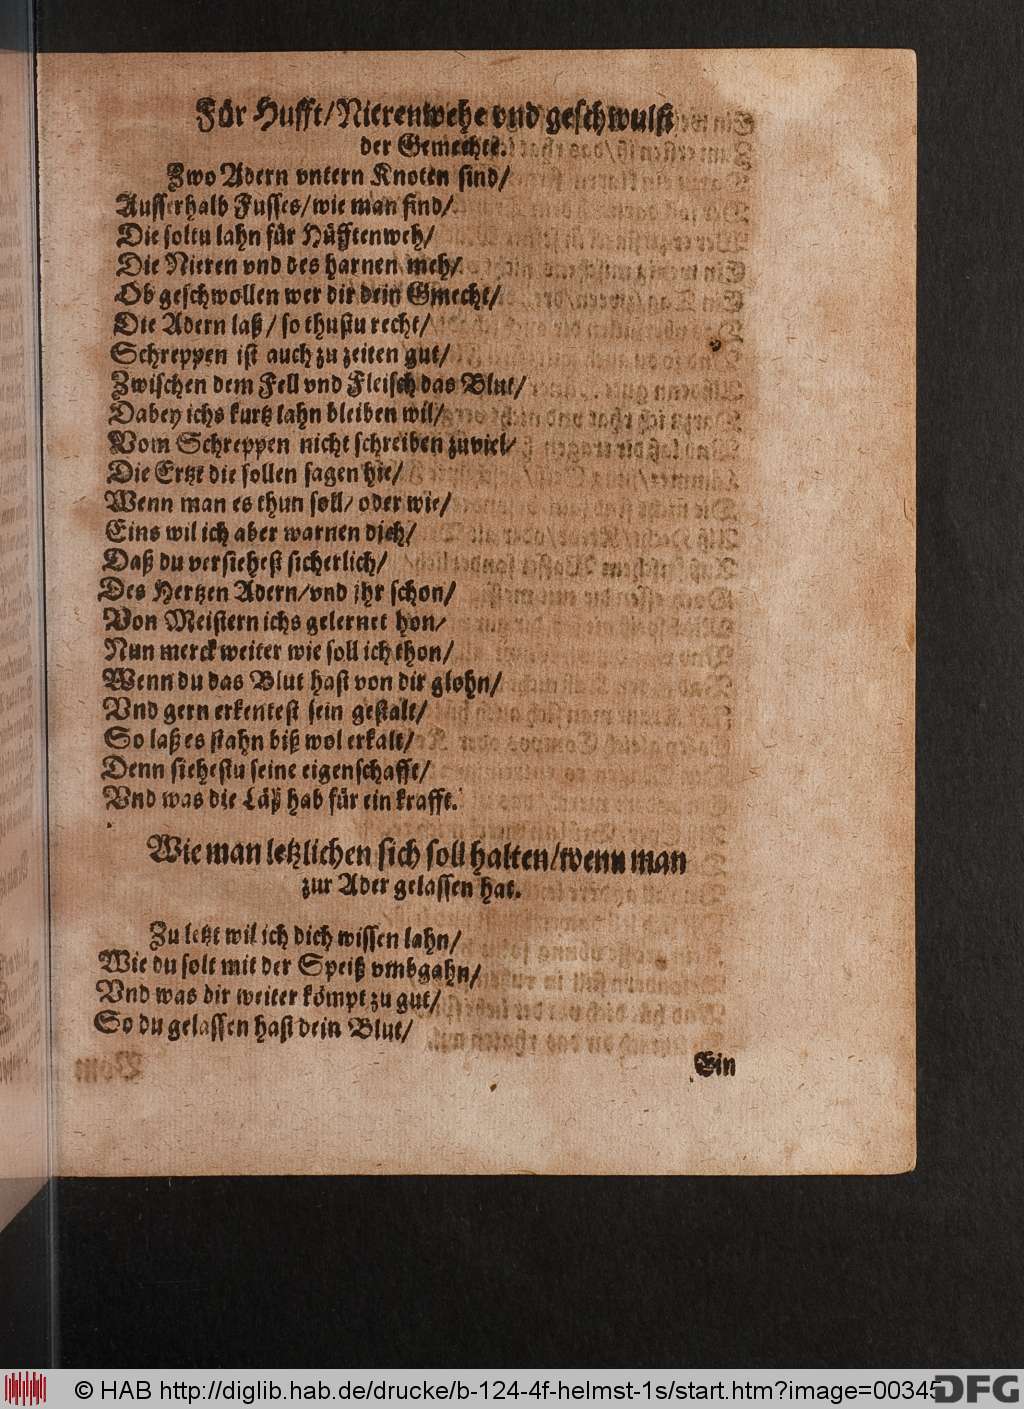 Für Hufft/Nierenwehe vnd geschwulst
der Gemechte.
Zwo Adern vntern Knoten sind/
Ausserhalb Fusses/wie man find/
Die soltu lahn für Hüfftenweh/
Die Nieren vnd des harnen meh/
Ob geschwollen wer dir dein Gmecht/
Die Adern laß/so thustu recht/
Schreppen ist auch zu zeiten gut/
Zwischen dem Fell vnd Fleisch das Blut/
Dabey ichs kurtz lahn bleiben wil/
Vom Schreppen nicht schreiben zuviel/
Die Ertzt die sollen sagen hie/
Wenn man es thun soll/oder wie/
Eins wil ich aber warnen dich/
Daß du versiehest sicherlich/
Des Hertzen Adern/vnd ihr schon/
Von Meistern ichs gelernet hon/
Nun merck weiter wie soll ich thon/
Wenn du das Blut hast von dir glohn/
Vnd gern erkentest sein gestalt/
So laß es stahn biß wol erkalt/
Denn siehestu seine eigenschafft/
Vnd was die Läß hab für ein krafft.
Wie man letzlichen sich soll halten/wenn man
zur Ader gelassen hat.
Zu letzt wil ich dich wissen lahn/
Wie du solt mit der Speiß vmbgahn/
Vnd was dir weiter kömpt zu gut/
So du gelassen hast dein Blut/
Ein
© HAB http://diglib.hab.de/drucke/b-124-4f-helmst-1s/start.htm?image=00345
DFG